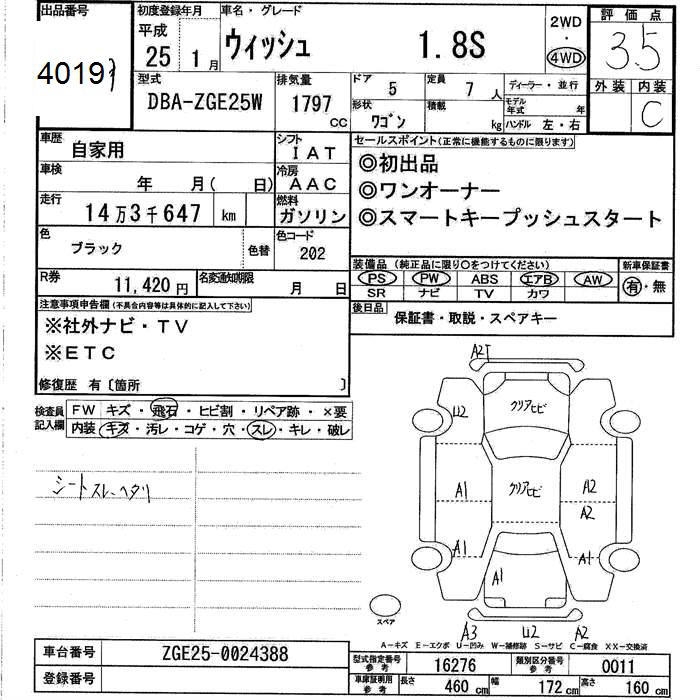 出品番号 初度登録年月 車名・グレード 2WD・4WD 評価点
4019
平成25 1月 ウィッシュ 1.8S 3.5
型式 排気量 ドア 5 定員 7人 ディーラー・並行 外装 内装
DBA-ZGE25W 1797CC 形状 ワゴン 積載 kg モデル年式 年 ハンドル 左・右 C
車歴 自家用 シフト IAT セールスポイント(正常に機能するものに限ります)
車検 年 月( 日) 冷房 AAC ◎初出品
走行 14万3千647 km 燃料 ガソリン ◎ワンオーナー
◎スマートキープッシュスタート
色 ブラック 色替 色コード 202
装備品(純正品に限り○をつけてください) 新車保証書
PS PW ABS エアB AW 有・無
SR ナビ TV カワ
R券 11,420円 名変通知期限 月 日
後日品 保証書・取説・スペアキー
注意事項申告欄(不具合内容等は具体的に記入して下さい)
※社外ナビ・TV
※ETC
修復歴 有〔箇所 〕
検査員記入欄 FW キズ・飛石・ヒビ割・リペア跡・×要
内装 キズ・汚レ・コゲ・穴・スレ・キレ・破レ
シートスレ・ヘタリ
A2T
U2 クリアヒビ
A1 クリアヒビ A2
A2
A1 A1
A1
スペア
A3 U2 A2
A-キズ E-エクボ U-凹み W-補修跡 S-サビ C-腐食 XX-交換済
車台番号 ZGE25-0024388
登録番号
型式指定番号 参考 16276 類別区分番号 参考 0011
車庫証明用 参考 長さ 460cm 幅 172cm 高さ 160cm